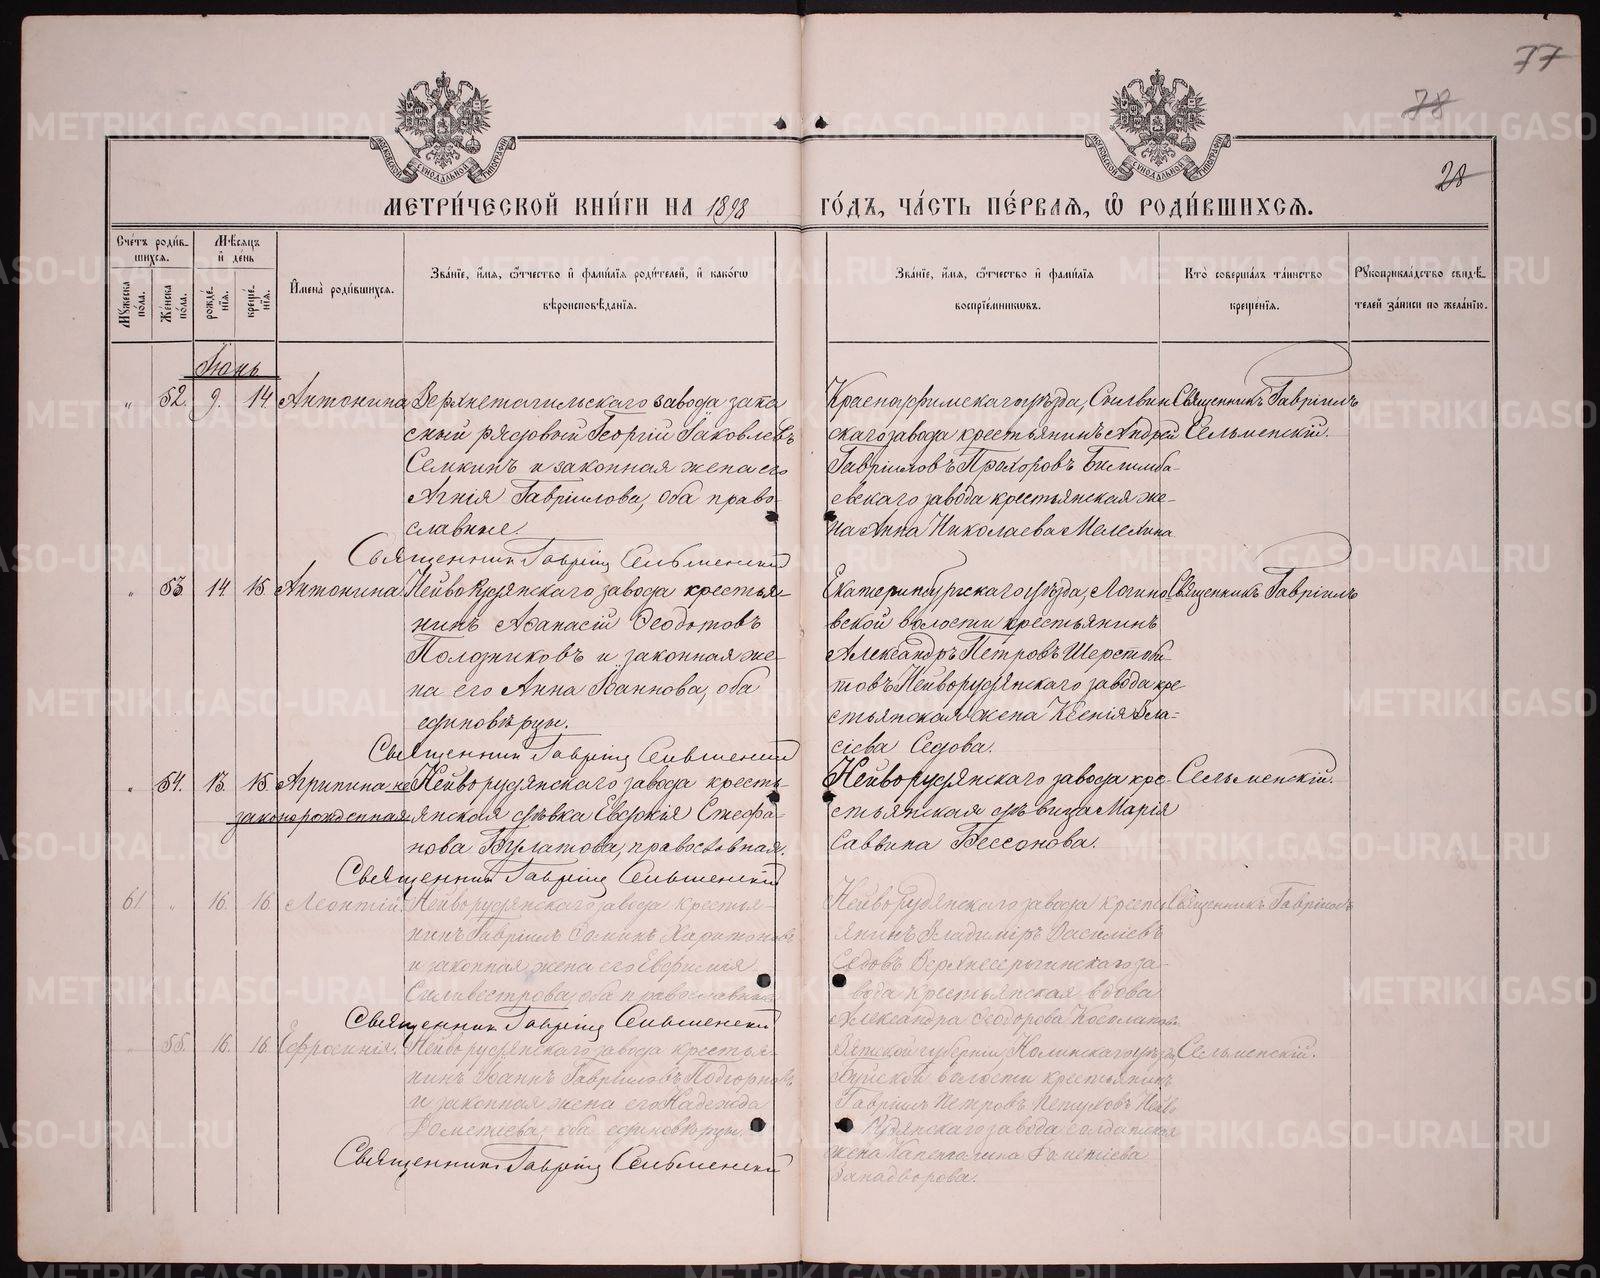 77
78
28
МЕТРИ́ЧЕСКОЙ КНИ́ГИ НА 1898 ГО́ДЪ, ЧА́СТЬ ПЕ́РВАЯ, Ѡ РОДИ́ВШИХСЯ.
Сче́тъ роди́в-
шихся.
Мꙋ́жеска по́ла.
Же́нска по́ла.
Мѣ́сяцъ и́ де́нь
рожде́нїя.
креще́нїя.
И́мена̀ роди́вшихся.
Зва́нїе, и́мя, ѻ҆́тчество и́ фами́лїя роди́телей, и́ како́гѡ
вѣроисповѣ́данїя.
Зва́нїе, и́мя, ѻ҆́тчество и́ фами́лїя
воспрїе́мниковъ.
Кто̀ соверша́лъ та́инство
креще́нїя.
Рꙋкоприкла́дство свидѣ́-
телей за́писи по жела́нїю.
Іюнь
" 52. 9. 14 Антонина
Верхнетагильскаго завода запа
сный рядовый Георгій Іаковлевъ
Семкинъ и законная жена его
Агнія Гавріилова, оба право-
славные.
Священник Гавріил Сельменскій
Красноуфимскаго уѣзда, Сылвин
скаго завода крестьянинъ Андрей
Гавріиловъ Прохоровъ Билимба-
евскаго завода крестьянская же-
на Анна Николаева Мелехина
Священникъ Гавріилъ
Сельменскій.
" 53 14 15 Антонина
Нейворудянскаго завода крестья-
нинъ Аѳанасій Ѳеодотовъ
Полозниковъ и законная же-
на его Анна Іоаннова, оба
единовѣрцы.
Священник Гавріил Сельменскій
Екатеринбургскаго уѣзда, Логино-
вской волости крестьянинъ
Александръ Петровъ Шерстоби-
товъ Нейворудянскаго завода кре-
стьянская жена Ксенія Вла-
сіева Седова.
Священникъ Гавріилъ
" 54. 13. 15 Агрипина не
законорожденная
Нейворудянскаго завода кресть-
янская дѣвка Евдокія Стефа-
нова Булатова, православная.
Священник Гавріил Сельменскій
Нейворудянскаго завода кре-
стьянская дѣвица Марія
Саввина Бессонова.
Сельменскій.
61 " 16. 16 Леонтій.
Нейворудянскаго завода крестья-
нинъ Гавріилъ Харитоновъ
и законная жена его Евфимія
Силивестрова, оба православные
Священник Гавріил Сельменскій
Нейворудянскаго завода кресть
янинъ Владиміръ Василіевъ
Седовъ Верхнесергинскаго за-
вода крестьянская вдова
Александра Ѳеодорова
Священникъ Гавріилъ
" 55. 16. 16 Ефросинія.
Нейворудянскаго завода крестья-
нинъ Іоаннъ Гавріиловъ Подгорновъ
и законная жена его Надежда
Дометіева, оба единовѣрцы.
Священник Гавріил Сельменскій
Вятской губерніи Нолинскаго уѣзда
Буйской волости крестьянинъ
Гавріилъ Петровъ Петуховъ Нейво
Рудянскаго завода солдатская
жена Капитолина Дометіева
Занадворова.
Сельменскій.
METRIKI.GASO-URAL.RU